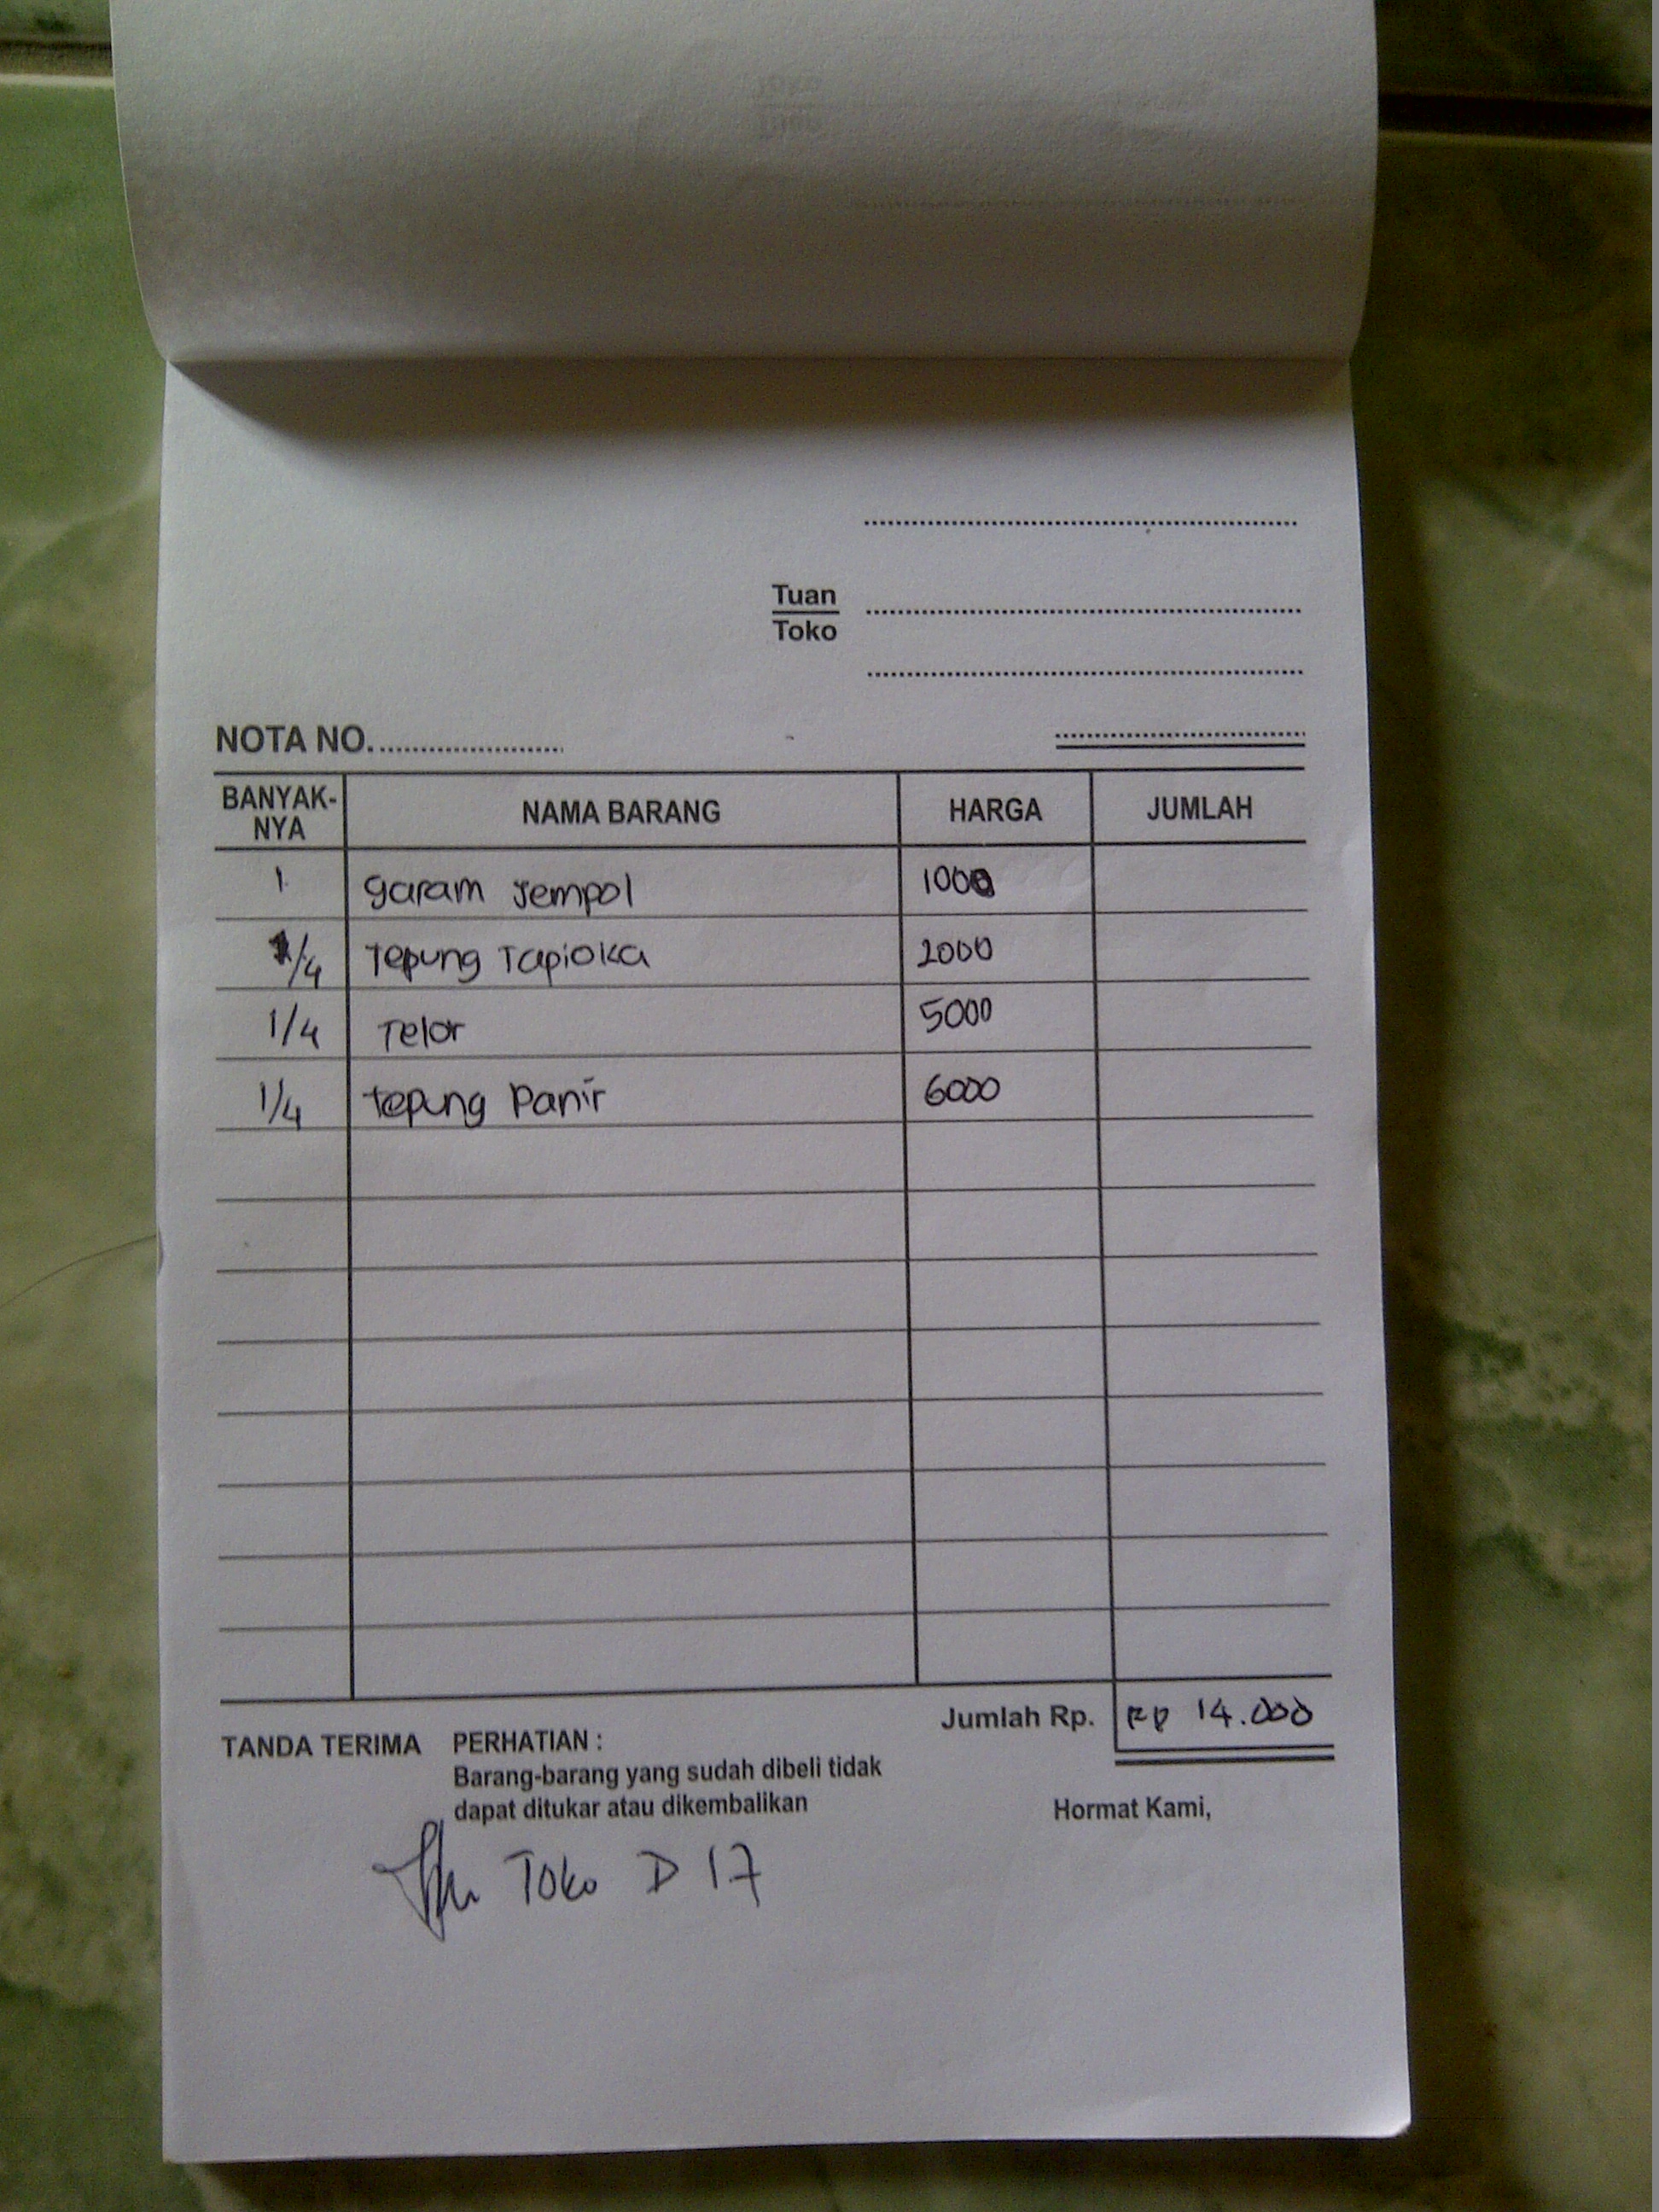 Tuan
Toko
NOTA NO.
BANYAK-NYA NAMA BARANG HARGA JUMLAH
1 garam Jempol 1000
1/4 Tepung Tapioka 2000
1/4 Telor 5000
1/4 tepung Panir 6000
Jumlah Rp. RP 14.000
TANDA TERIMA PERHATIAN :
Barang-barang yang sudah dibeli tidak
dapat ditukar atau dikembalikan
Hormat Kami,
Toko D 17